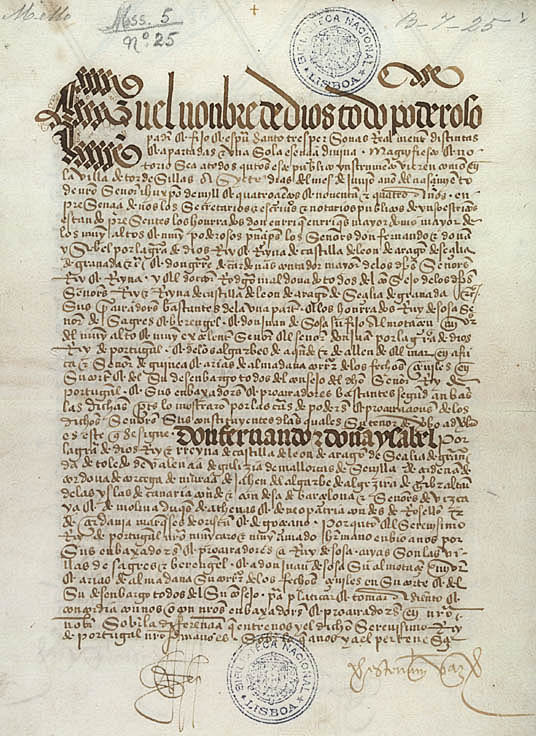 Mello
Mss. 5
Nº. 25
B-7-25
BIBLIOTECA NACIONAL LISBOA
En el nonbre de dios todo poderoso
padre & fijo & espu santo tres personas Real mente distintas
& apartadas & una Sola esencia divina. Magnifiesto & no
torio Sea a todos quantos este publico ynstrumento vieren como en
la villa de tordesillas A Siete dias del mes de junio año del nascimiento
de nro Señor ihu xpo de mill & quatrocientos & noventa & quatro años. en
presencia de nos los Secretarios & escrivanos & notarios publicos de yuso escriptos
estando presentes los honrrados don enrrique enrriques mayordomo mayor de
los muy altos & muy poderosos principes los Señores don fernando & doña
ysabel por la gracia de dios Rey & Reyna de castilla de leon de aragon de Secilia
de granada & & don gutierre de cardenas contador mayor de los dichos Señores
Rey & Reyna. y el doctor Rodrigo maldonado todos del consejo de los dichos
Señores Rey & Reyna de castilla de leon de aragon de Secilia de granada
Sus procuradores bastantes de la una parte. & los honrrados Ruy de sosa Se
ñor de Sagres & berengel. & don juan de Sosa Su fijo almotacen mayor
del muy alto & muy excelente Señor el Señor don juan por la gracia de dios
Rey de portugal. & de los algarbes de aquende & de allende el mar en afri
ca & Señor de guinea & arias de almadana corregidor de los fechos çeviles en
Su corte & del Su desenbargo todos del consejo del dicho Señor Rey de
portugal. & Sus enbaxadores & procuradores bastantes segund anbas
las dichas partes lo mostraron por las cartas de poderes & procuraciones de los
dichos Señores Sus constituyentes de las quales Su tenor de verbo ad verbo
es este que se sigue Don fernando & doña ysabel por
la gracia de dios Rey & Reyna de castilla de leon de aragon de Secilia de grana
da de toledo de valencia de galizia de mallorcas de Sevilla de cerdeña de
cordova de corcega de murcia de jahen del algarbe de algezira de gibraltar
de las yslas de canaria conde & condesa de barcelona & Señores de vizca
ya & de molina duques de athenas & de neopatria condes de Rosellon &
de cerdania marqueses de oristan & de gociano. Por quanto el Serenisimo
Rey de portugal nro muy caro & muy amado hermano enbio a nos por
Sus enbaxadores & procuradores a Ruy de sosa cuyas Son las vi
llas de sagres & berengel. & a don juan de sosa Su almotacen mayor
& arias de almadana Su corregidor de los fechos çeviles en Su corte & del
Su desenbargo todos del Su consejo. para platicar & tomar asiento &
concordia con nos o con nros enbaxadores & procuradores en nro
nonbre Sobre la diferencia que entre nos y el dicho Serenisimo Rey
de portugal nro hermano es Sobre lo que a nos y a el pertenesce
BIBLIOTECA NACIONAL LISBOA